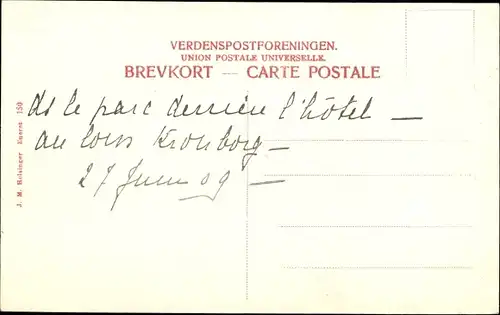 VERDENSPOSTFORENINGEN.
UNION POSTALE UNIVERSELLE.
BREVKORT — CARTE POSTALE
ds le parc derrière l'hôtel —
au Kronborg —
27 Juin 09 —
J. M. Helsingør Eneret 150